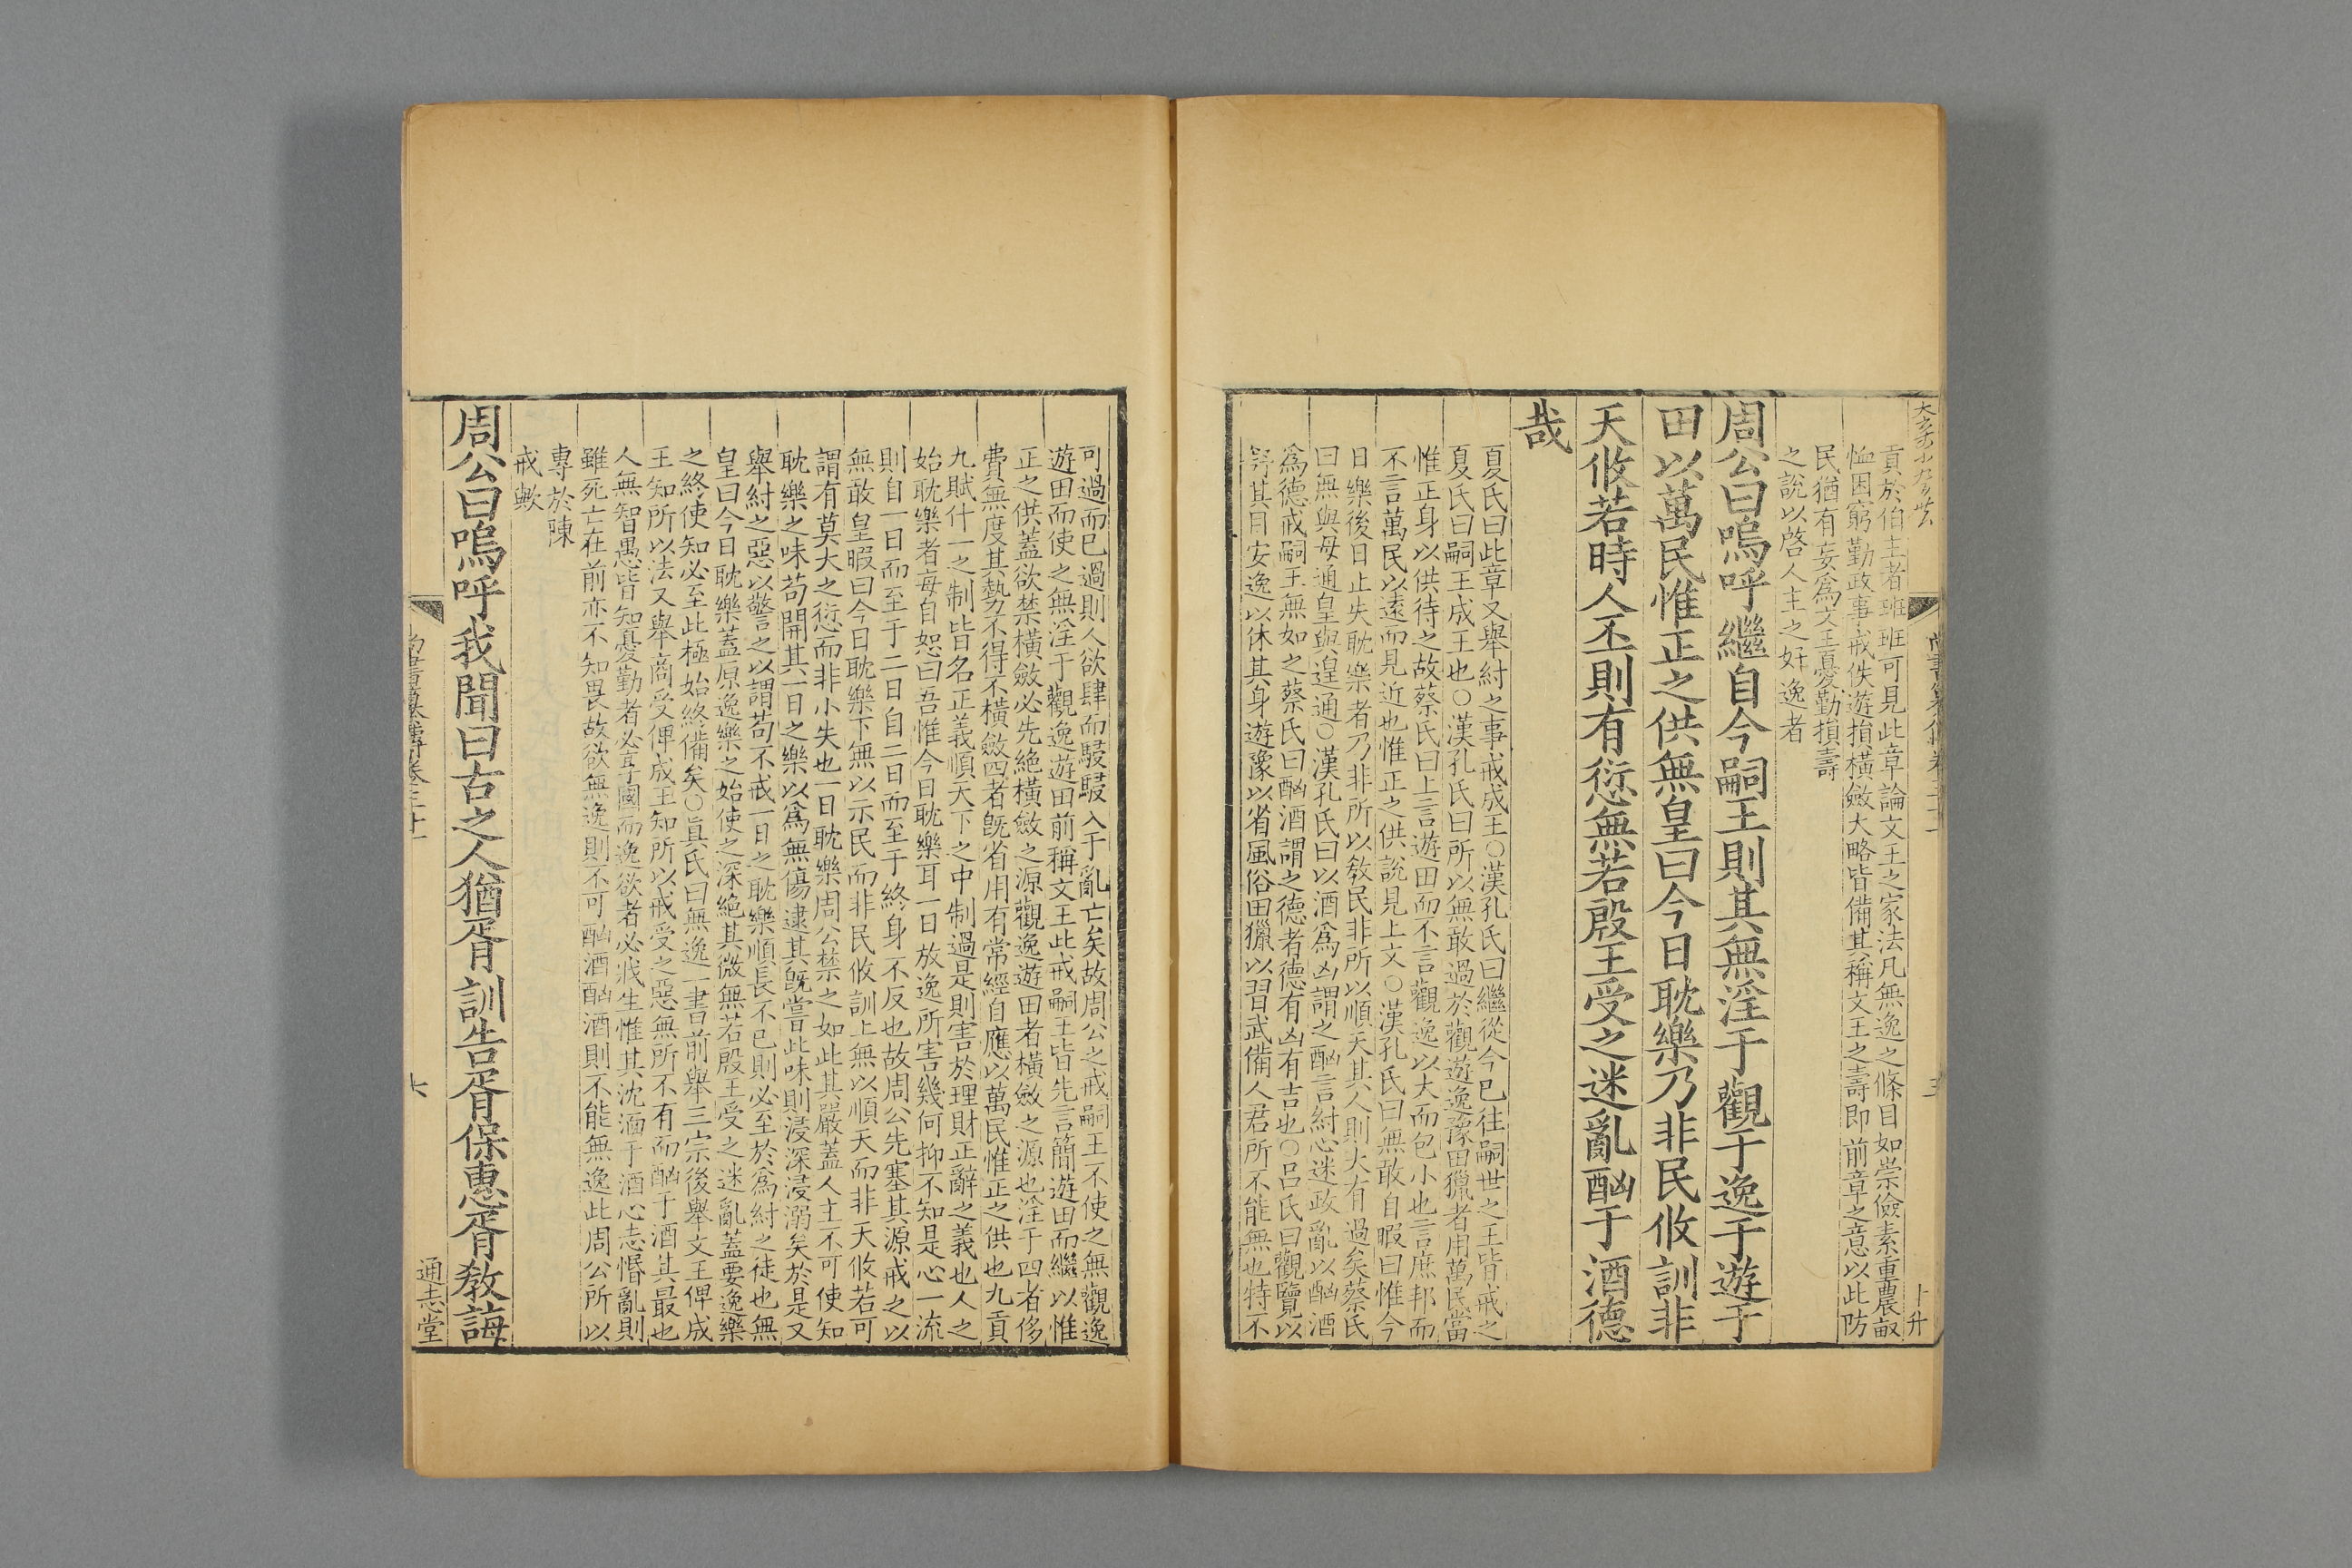 貢於伯主者班班可見此章論文王之家法凡無逸之條目如崇儉素重農畝
恤困窮勤政事戒佚遊損橫斂大略皆備其稱文王之壽即前章之意以此防
民猶有妄爲文王憂勤損壽
之說以啓人主之奸逸者
周公曰嗚呼繼自今嗣王則其無淫于觀于逸于遊于
田以萬民惟正之供無皇曰今日耽樂乃非民攸訓非
天攸若時人丕則有愆無若殷王受之迷亂酗于酒德
哉
夏氏曰此章又舉紂之事戒成王○漢孔氏曰繼從今已往嗣世之王皆戒之
夏氏曰嗣王成王也○漢孔氏曰所以無敢過於觀遊逸豫田獵者用萬民當
惟正身以供待之故蔡氏曰上言遊田而不言觀逸以大而包小也言庶邦而
不言萬民以遠而見近也惟正之供說見上文○漢孔氏曰無敢自暇曰惟今
日樂後日止失耽樂者乃非所以敎民非所以順天其人則大有過矣蔡氏
曰無與毋通皇與遑通○漢孔氏曰以酒爲凶謂之酗言紂心迷政亂以酗酒
爲德戒嗣王無如之蔡氏曰酗酒謂之德者德有凶有吉也○呂氏曰觀覽以
舒其目安逸以休其身遊豫以省風俗田獵以習武備人君所不能無也特不
十
升
可過而已過則人欲肆而駸駸入于亂亡矣故周公之戒嗣王不使之無觀逸
遊田而使之無淫于觀逸遊田前稱文王此戒嗣王皆先言簡遊田而繼以惟
正之供蓋欲禁橫斂必先絕橫斂之源觀逸遊田者橫斂之源也淫于四者侈
費無度其勢不得不橫斂四者旣省用有常經自應以萬民惟正之供也九貢
九賦什一之制皆名正義順天下之中制過是則害於理財正辭之義也人之
始耽樂者每自恕曰吾惟今日耽樂耳一日放逸所害幾何抑不知是心一流
則自一日而至于二日自二日而至于終身不反也故周公先塞其源戒之以
無敢皇暇曰今日耽樂下無以示民而非民攸訓上無以順天而非天攸若可
謂有莫大之愆而非小失也一日耽樂周公禁之如此其嚴蓋人主不可使知
耽樂之味苟開其一日之樂以爲無傷逮其旣嘗此味則浸深浸溺矣於是又
舉紂之惡以警言之以謂苟不戒一日之耽樂順長不已則必至於爲紂之徒也無
皇曰今日耽樂蓋原逸樂之始使之深絕其微無若殷王受之迷亂蓋要逸樂
之終使知必至此極始終備矣○眞氏曰無逸一書前舉三宗後舉文王俾成
王知所以法又舉商受俾成王知所以戒受之惡無所不有而酗于酒其最也
人無智愚皆知憂勤者必享國而逸欲者必戕生惟其沈湎于酒心志惛亂則
雖死亡在前亦不知畏故欲無逸則不可酗酒酗酒則不能無逸此周公所以
專於陳
戒歟
周公曰嗚呼我聞曰古之人猶胥訓告胥保惠胥敎誨
六
通志堂